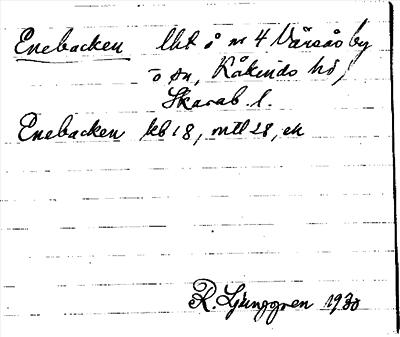 Enebacken lht å nr 4 Värsås by
o sn, Kåkinds hd,
Skarab. l.
Enebacken kb 18, mtl 28, ek
R. Ljunggren 1930